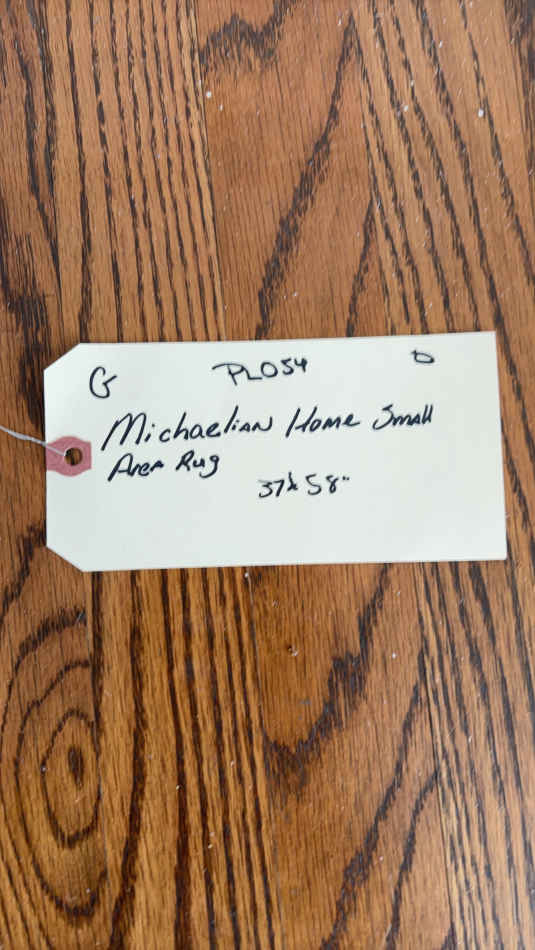 G PL054 D
Michaelian Home Small
Area Rug
37x58"